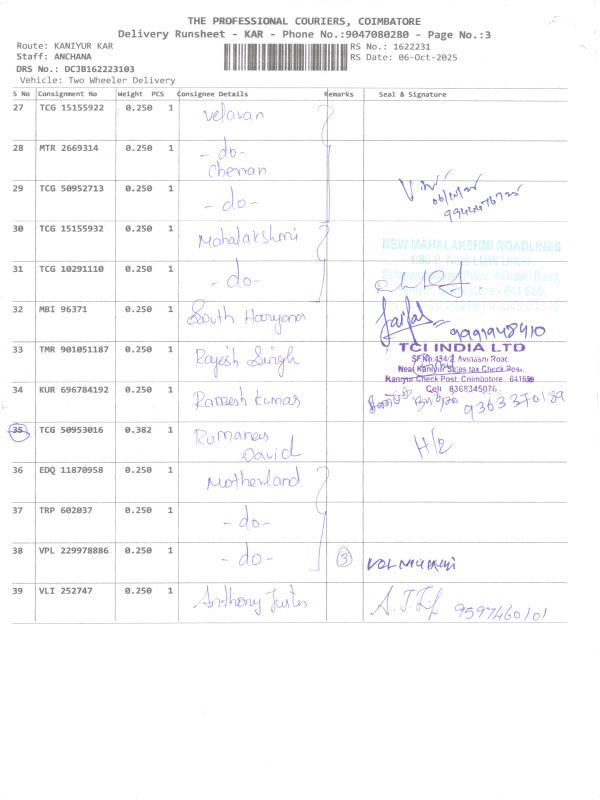 THE PROFESSIONAL COURIERS, COIMBATORE
Delivery Runsheet - KAR - Phone No.:9047080280 - Page No.:3
Route: KANIYUR KAR
RS No.: 1622231
Staff: ANCHANA
RS Date: 06-Oct-2025
DRS No.: DCJB162223103
Vehicle: Two Wheeler Delivery
S No Consignment No Weight PCS Consignee Details Remarks Seal & Signature
27 TCG 15155922 0.250 1 Velavan
28 MTR 2669314 0.250 1 -do-
Cheran
29 TCG 50952713 0.250 1 -do-
30 TCG 15155932 0.250 1 Mahalakshmi
NEW MAHALAKSHMI ROADLINES
31 TCG 10291110 0.250 1 -do-
32 MBI 96371 0.250 1 South Haryana
9991948410
33 TMR 901051187 0.250 1 Rajesh Singh
TCI INDIA LTD
SF.No.434/2, Avinashi Road
Near Kaniyur Sales tax Check Post,
Kaniyur Check Post, Coimbatore
Cell: 8368345076
34 KUR 696784192 0.250 1 Ramesh Kumar
9363370189
35 TCG 50953016 0.382 1
David
H/2
36 EDQ 11870958 0.250 1 Motherland
37 TRP 602037 0.250 1 -do-
38 VPL 229978886 0.250 1 -do- 3
39 VLI 252747 0.250 1 Anthony
9597460101